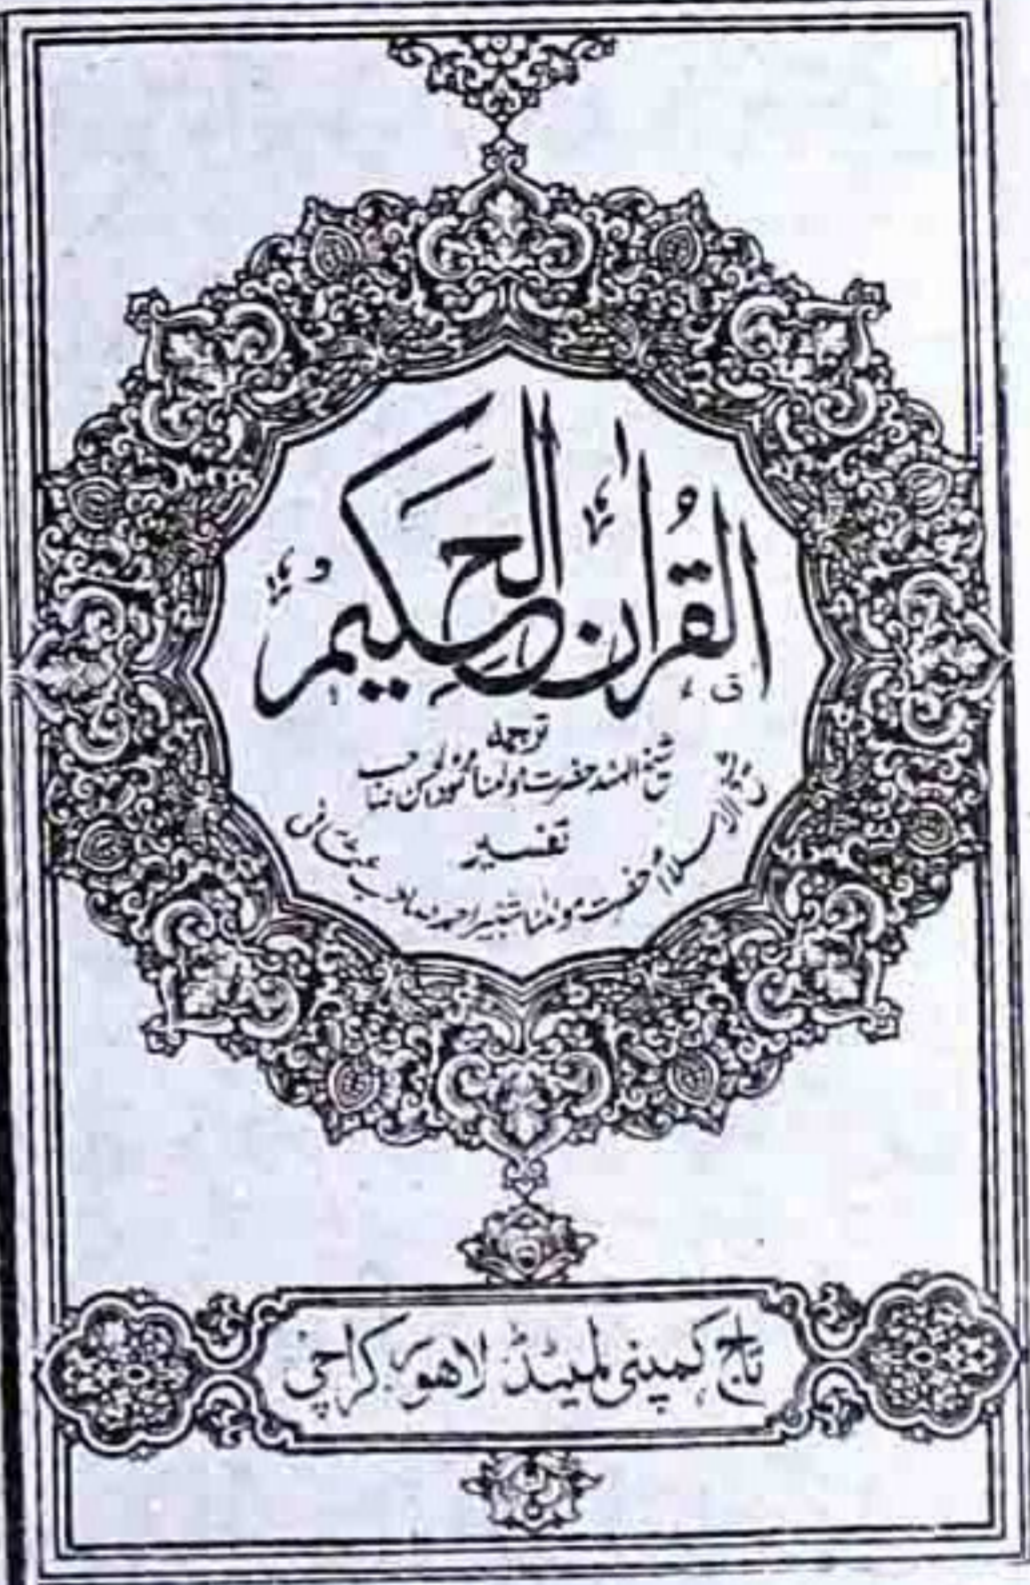 القرآن الحكيم
ترجمہ
شیخ الہند حضرت مولٰنا محمود الحسن صاحب
تفسیر
حضرت مولٰنا شبیر احمد صاحب عثمانی
تاج کمپنی لمیٹڈ لاہور کراچی